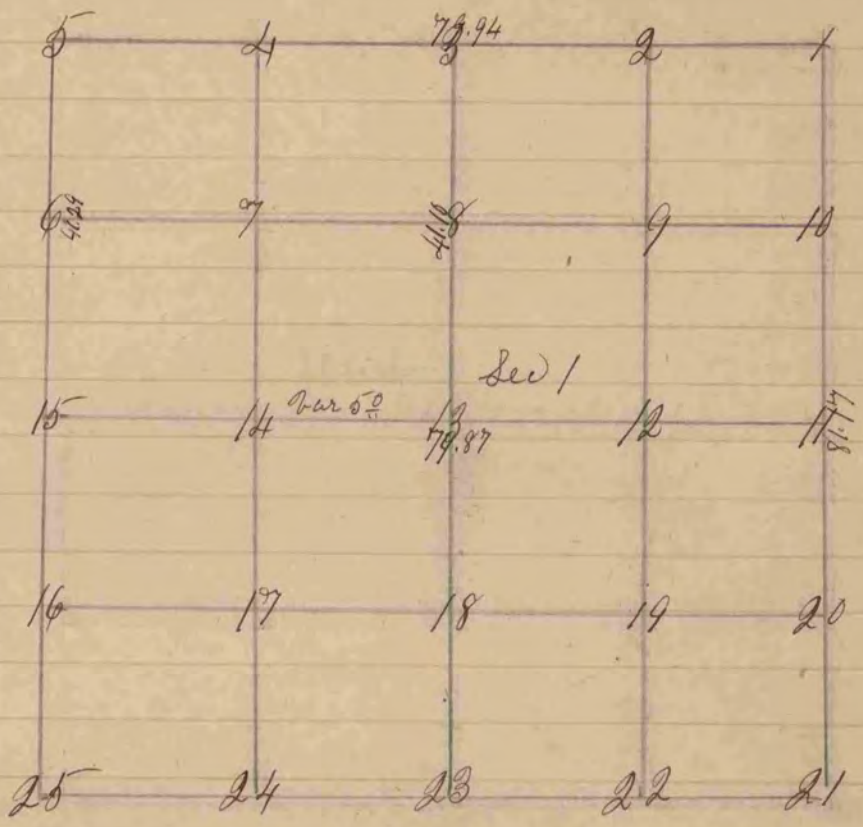 5 4 3 2 1
79.94
6 7 8 9 10
41.29
41.18
Sec 1
15 14 13 12 11
var 5º
79.87
81.17
16 17 18 19 20
25 24 23 22 21